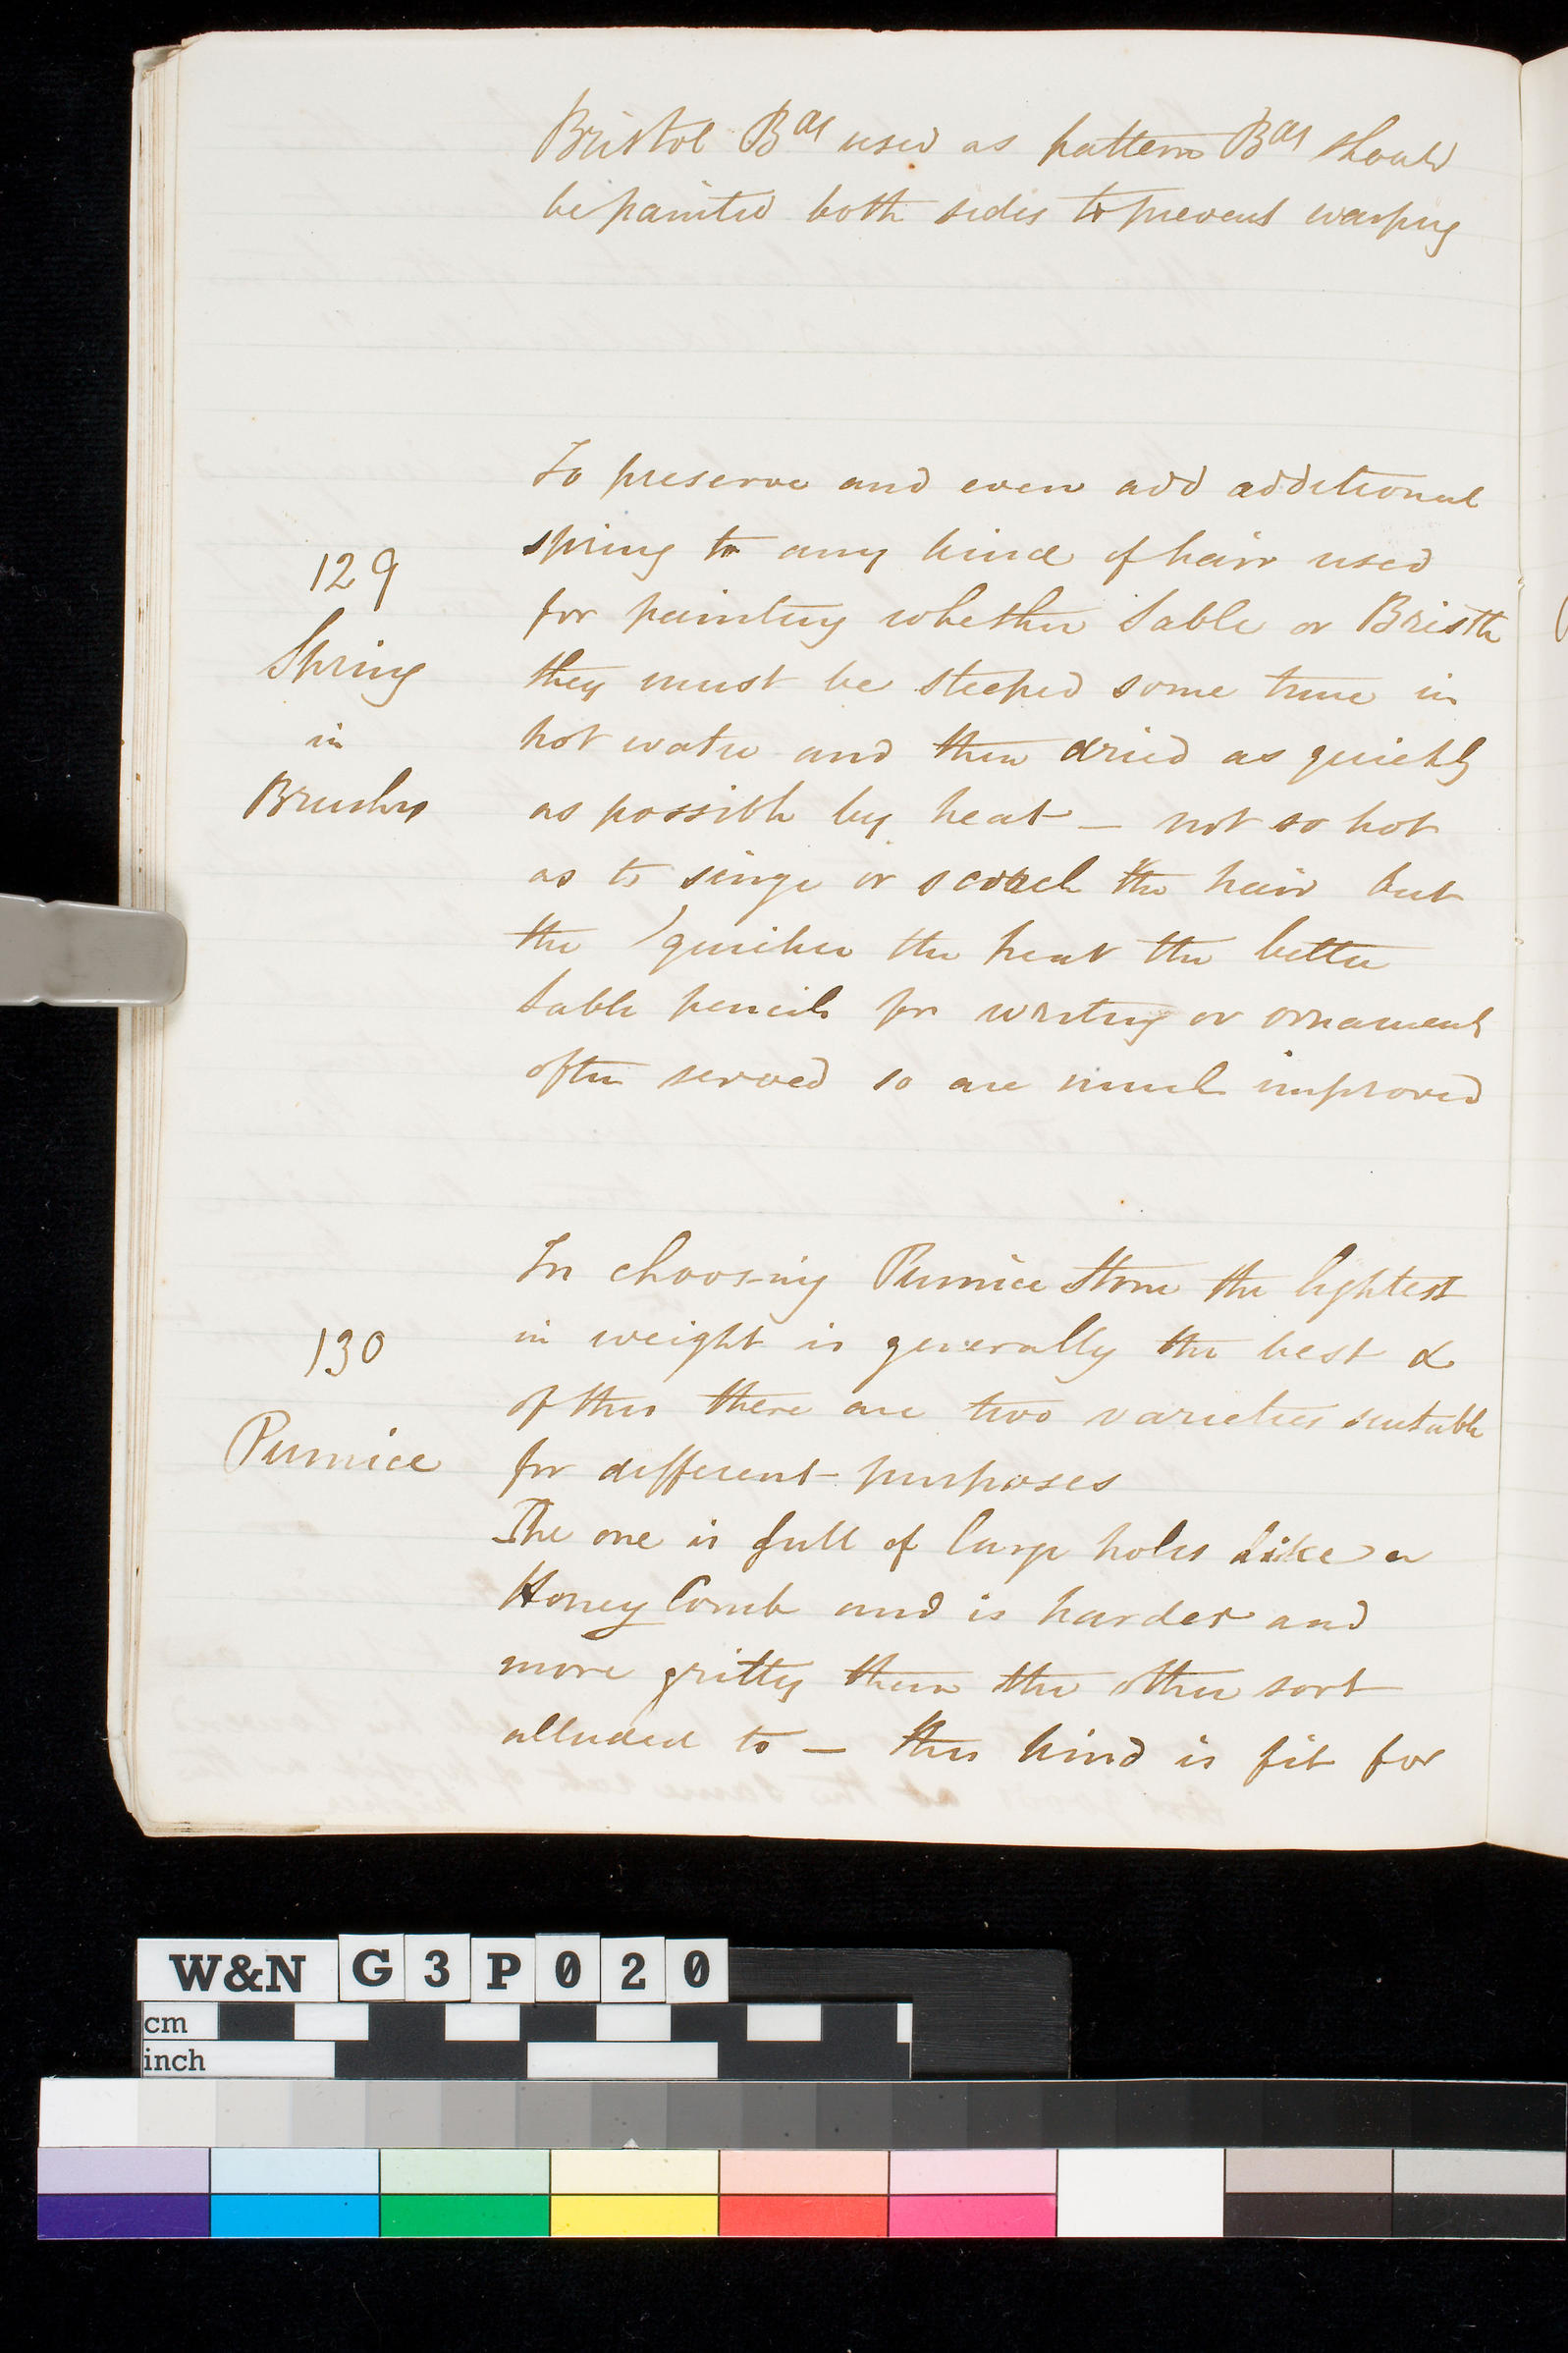 Bristol Bds used as pattern Bds should
be painted both sides to prevent warping
To preserve and even add additional
129
spring to any kind of hair used
for painting whether Sable or Bristle
Spring
they must be steeped some time in
in
hot water and then dried as quickly
Brushes
as possible by heat — not so hot
as to singe or scorch the hair but
the quicker the heat the better
Sable pencils for writing or ornament
often served so are much improved
In choosing Pumice Stone the lightest
130
in weight is generally the best &
of this there are two varieties suitable
Pumice
for different purposes
The one is full of large holes like a
Honey Comb and is harder and
more gritty than the other sort
alluded to — this kind is fit for
W&N G3P020
cm
inch